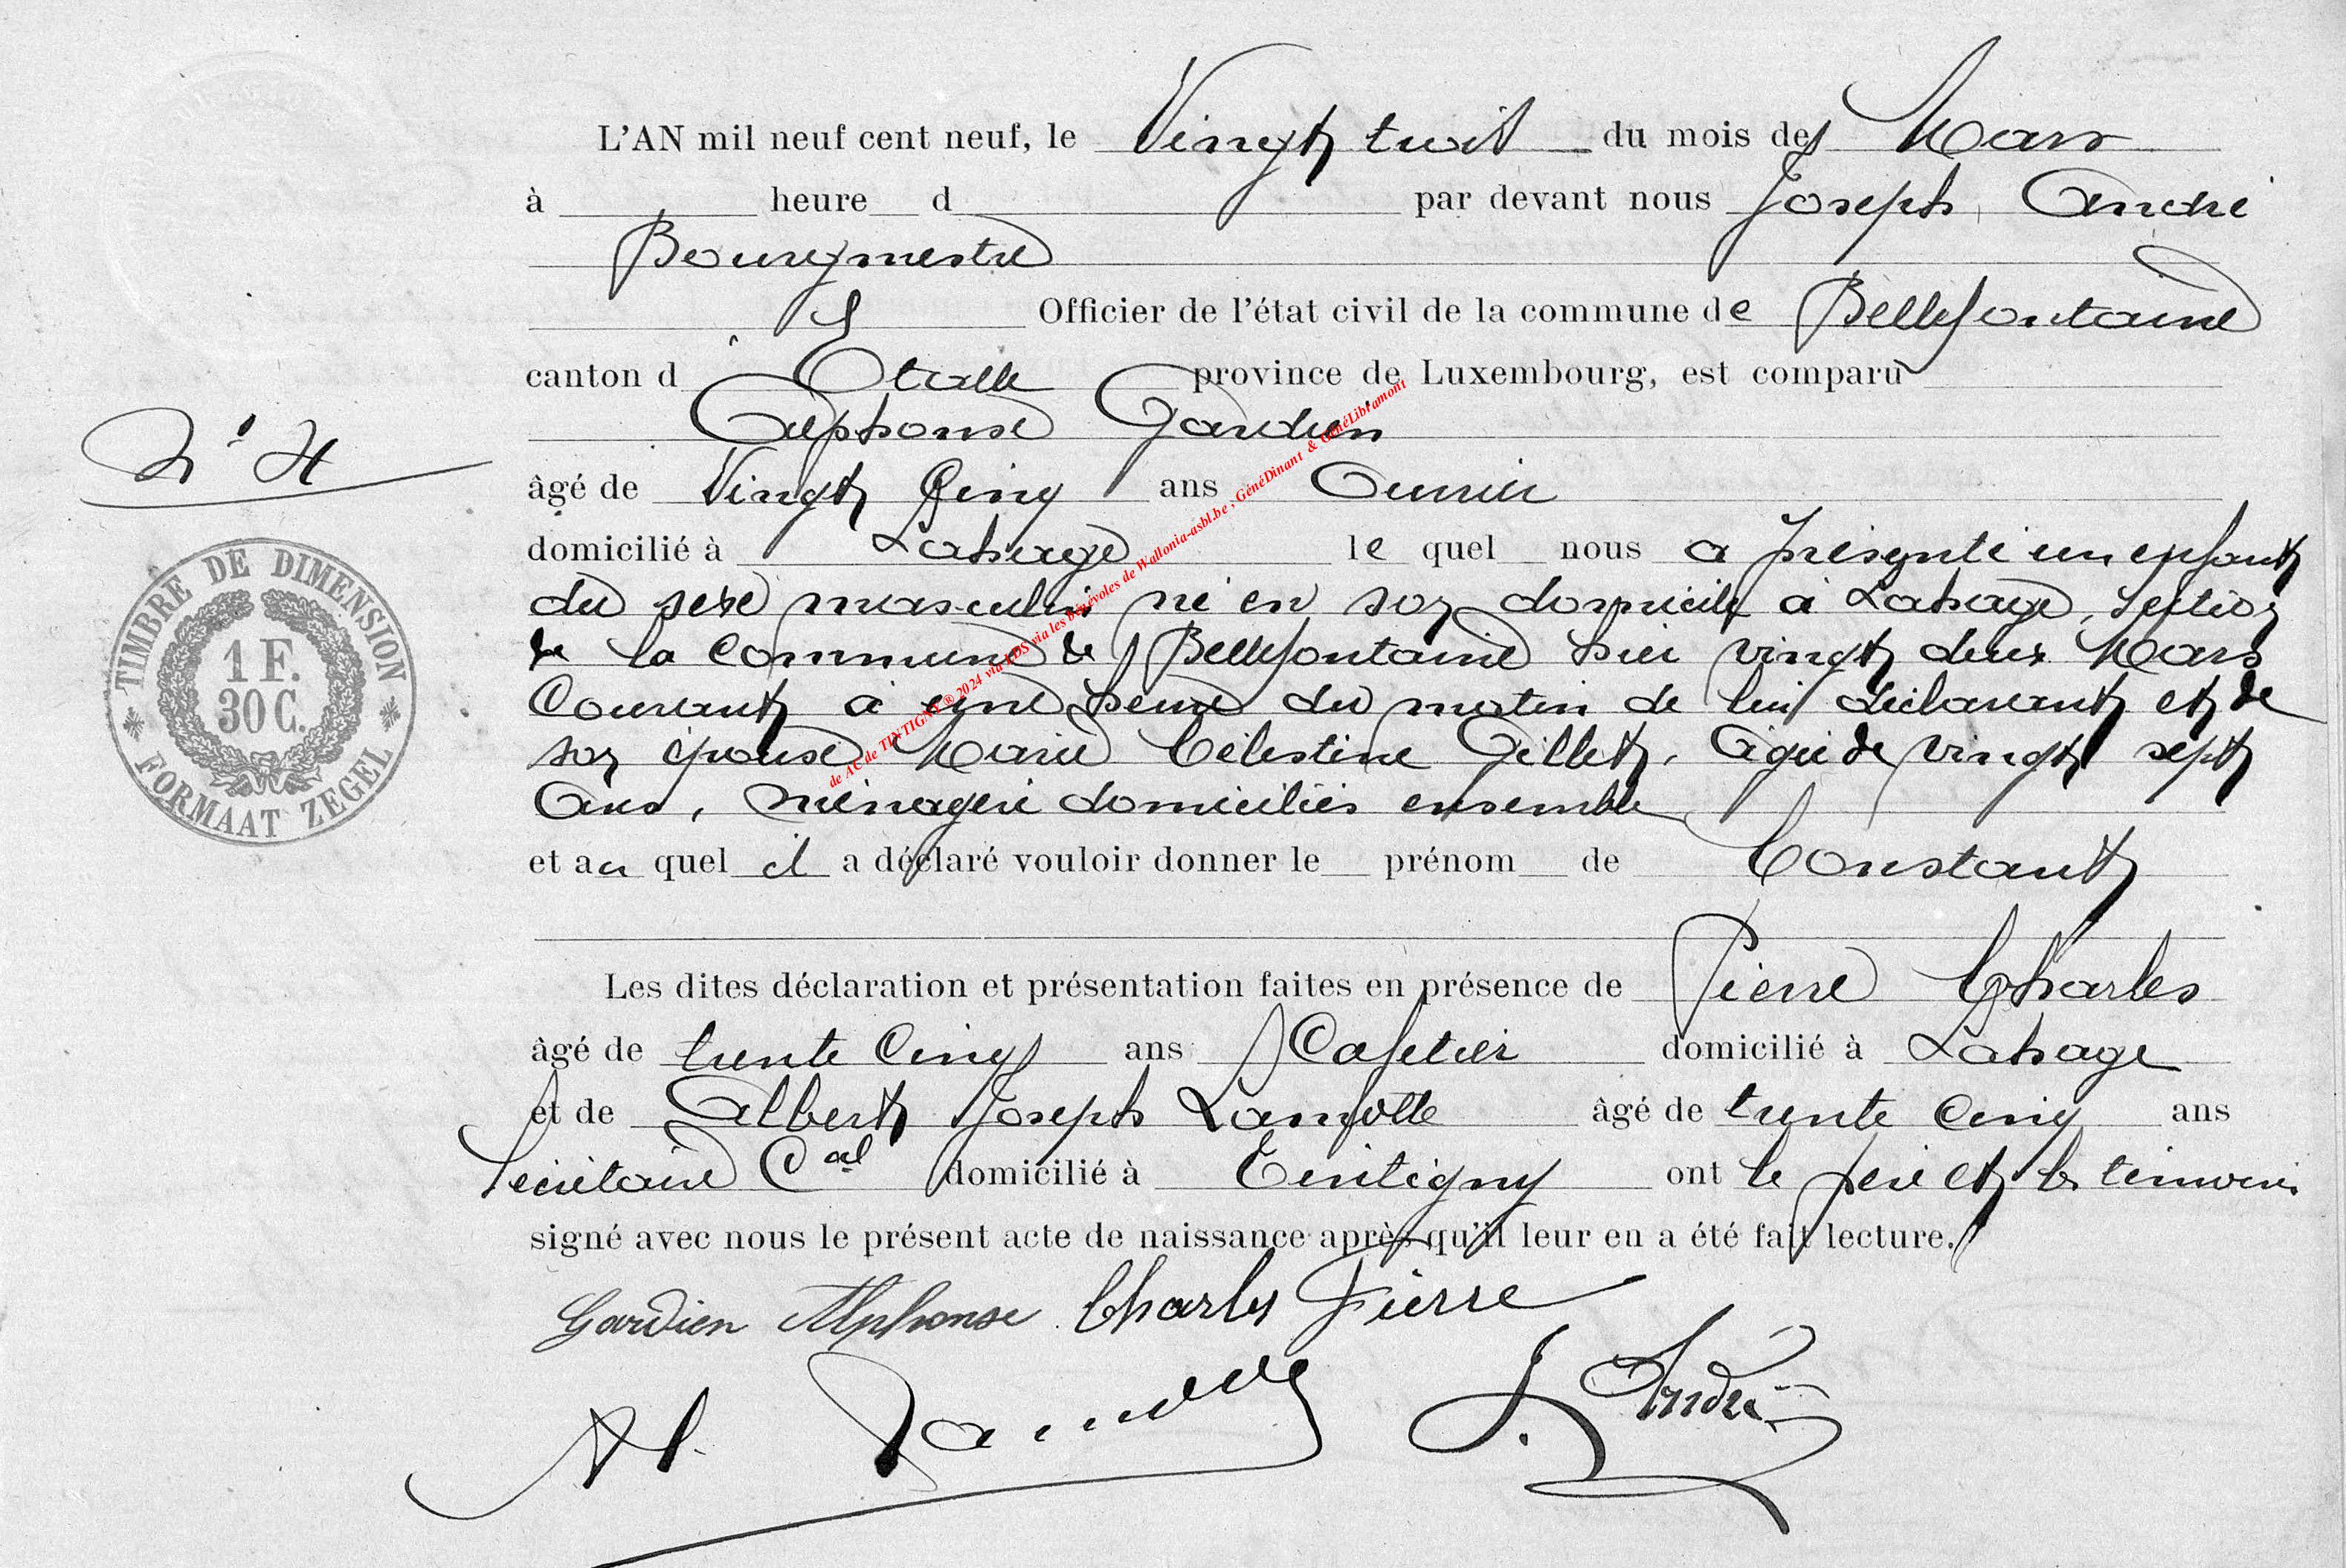 L'AN mil neuf cent neuf, le Vingt trois du mois de Mars
à heure d par devant nous Joseph André
Bourgmestre
Officier de l'état civil de la commune de Bellefontaine
canton d' Etalle province de Luxembourg, est comparu
Alphonse Gardien
N° 4
âgé de Vingt Cinq ans Ouvrier
domicilié à Lahage le quel nous a présenté un enfant
du sexe masculin né en son domicile à Lahage, section
de la commune de Bellefontaine hier vingt deux Mars
Courant à une heure du matin de lui déclarant et de
son épouse Marie Célestine Gillet, âgée de vingt sept
Ans, ménagère domiciliés ensemble
et au quel il a déclaré vouloir donner le prénom de Constant
Les dites déclaration et présentation faites en présence de Pierre Charles
âgé de trente Cinq ans Cafetier domicilié à Lahage
et de Albert Joseph Lamotte âgé de trente cinq ans
Secrétaire Cal domicilié à Tintigny ont le père et les témoins
signé avec nous le présent acte de naissance après qu'il leur en a été fait lecture.
Gardien Alphonse Charles Pierre
J. André
TIMBRE DE DIMENSION
1 F.
30 C.
FORMAAT ZEGEL
de AC de TINTIGNY ® 2024 via FDS via les bénévoles de Wallonia-asbl.be, GénéDinant & GénéLibramont